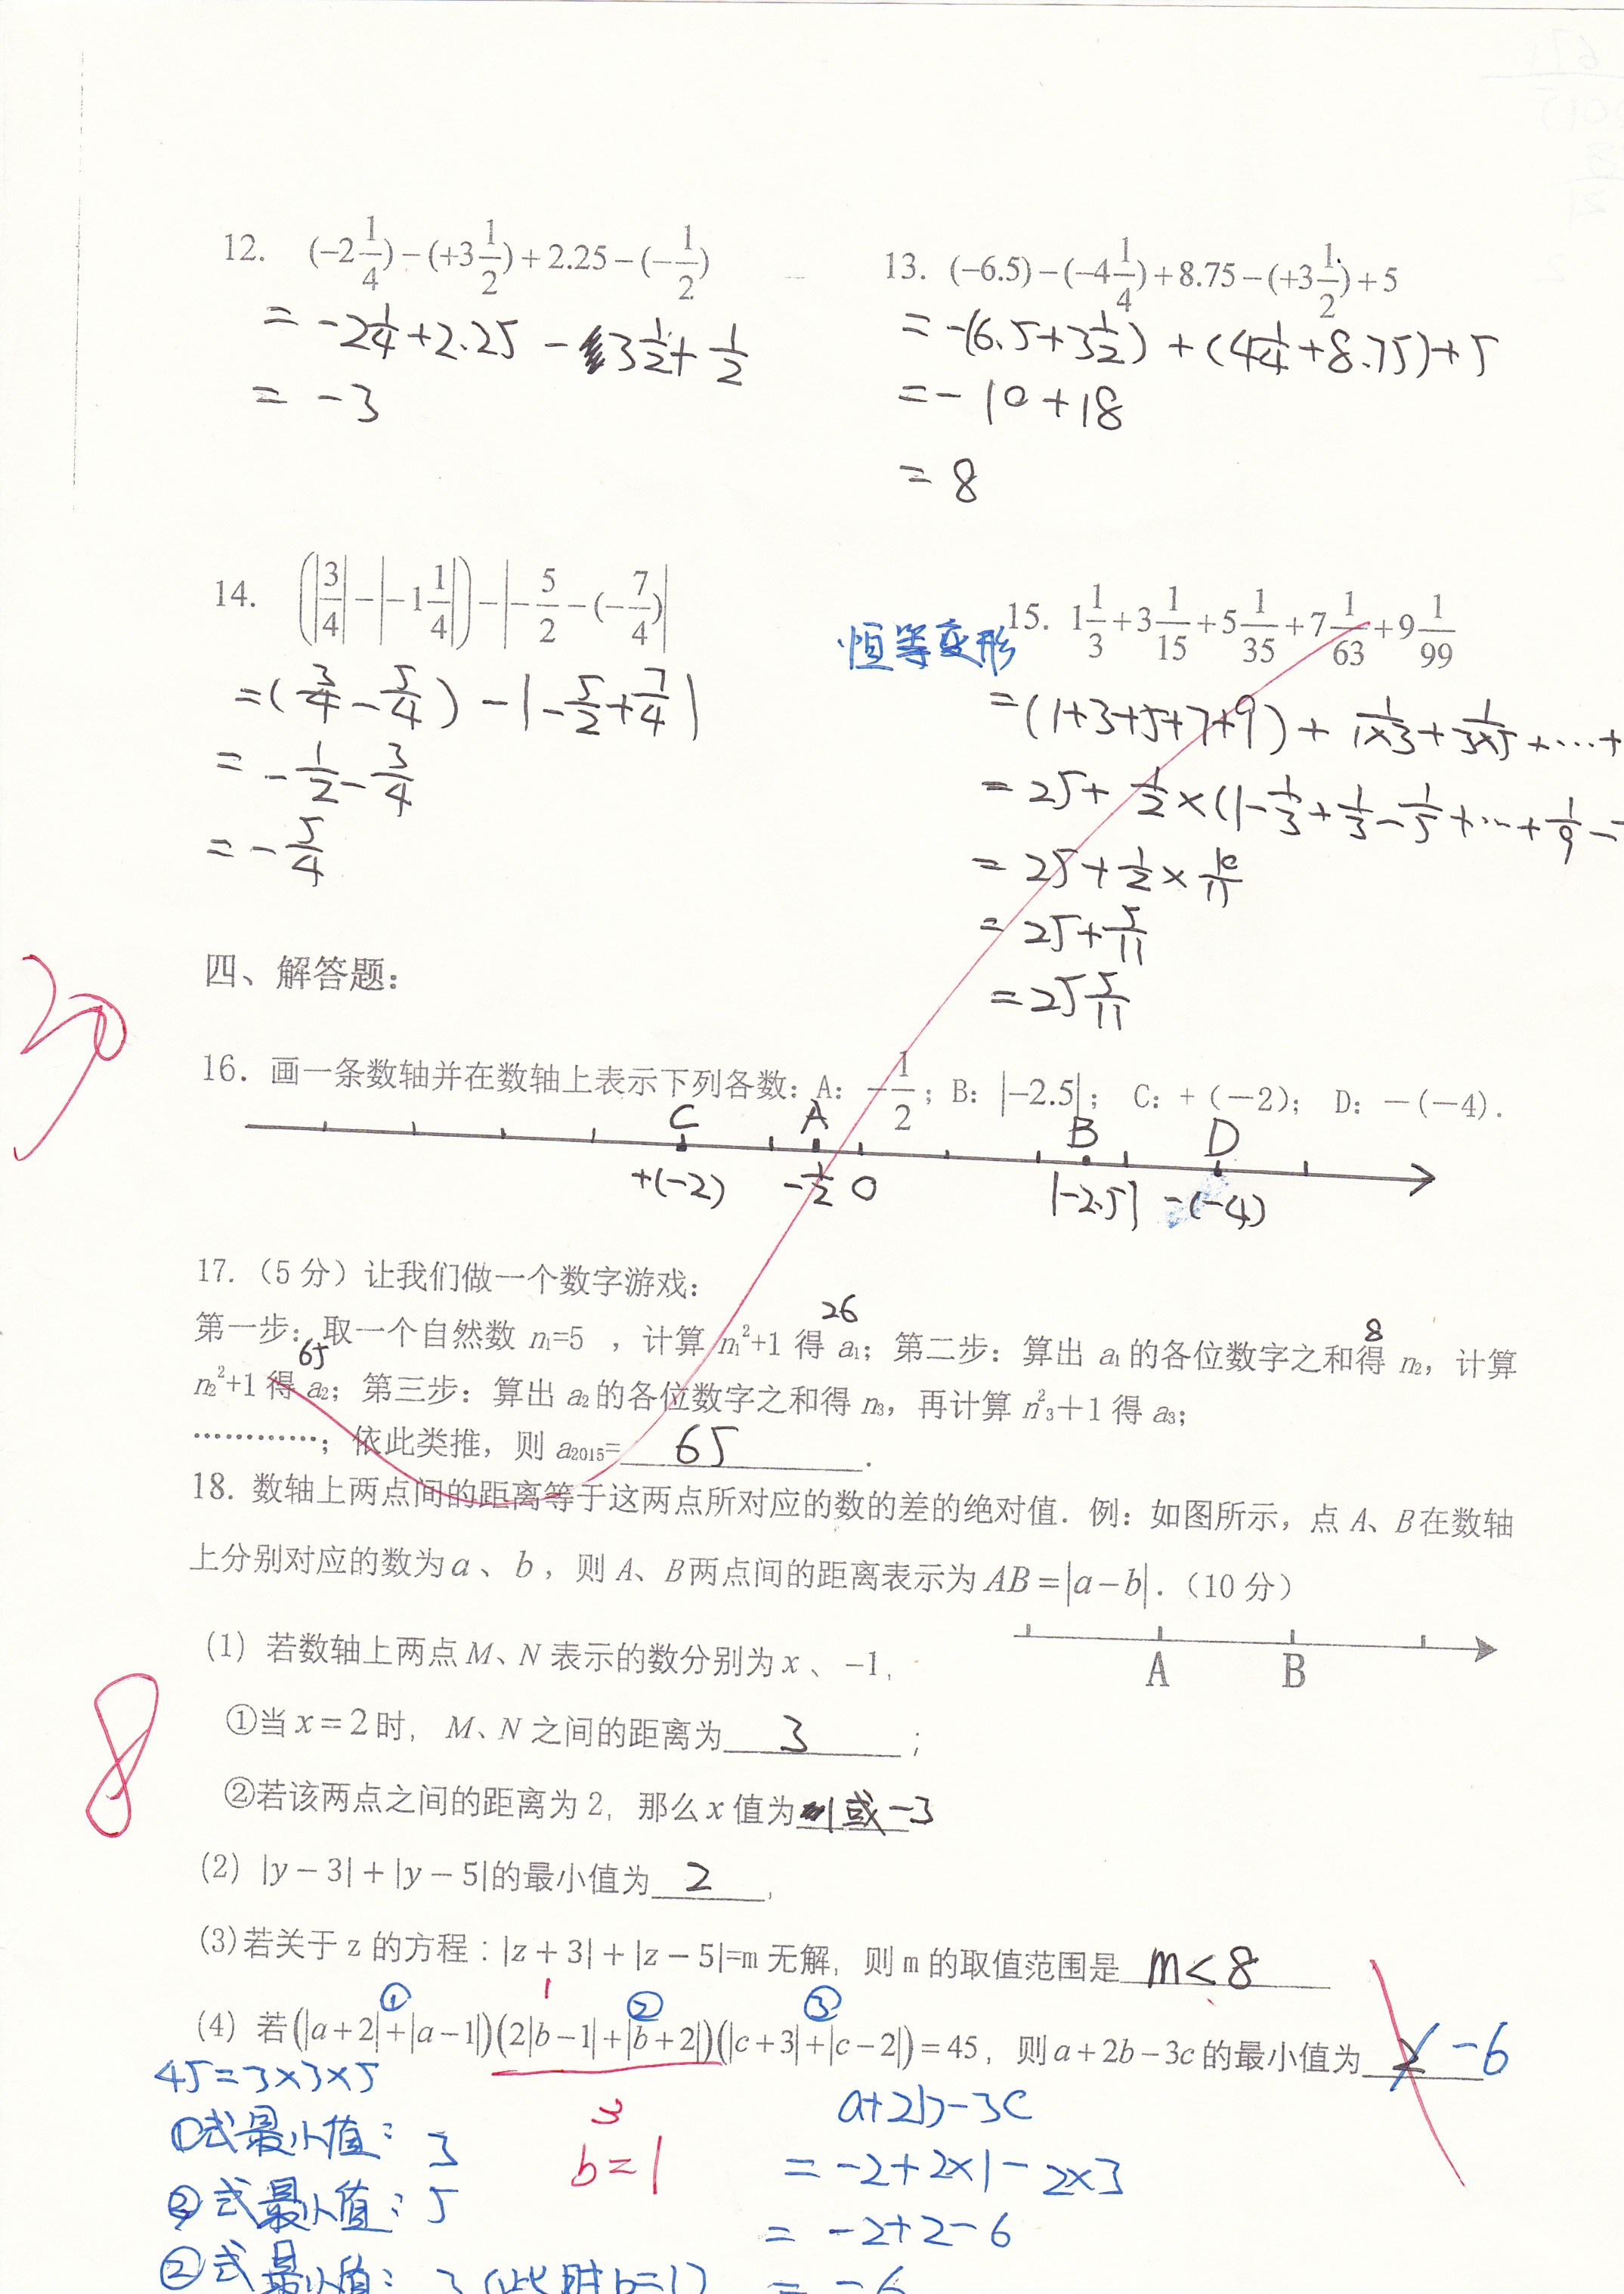 12. (-2 1/4) - (+3 1/2) + 2.25 - (-1/2)
= -2 1/4 + 2.25 - 3 1/2 + 1/2
= -3
13. (-6.5) - (-4 1/4) + 8.75 - (+3 1/2) + 5
= -(6.5 + 3 1/2) + (4 1/4 + 8.75) + 5
= -10 + 18
= 8
14. (|3/4| - |-1 1/4|) - |-5/2 - (-7/4)|
= (3/4 - 5/4) - |-5/2 + 7/4|
= -1/2 - 3/4
= -5/4
恒等变形
15. 1 1/3 + 3 1/15 + 5 1/35 + 7 1/63 + 9 1/99
= (1+3+5+7+9) + 1/1×3 + 1/3×5 + ... +
= 25 + 1/2 × (1 - 1/3 + 1/3 - 1/5 + ... + 1/9 -
= 25 + 1/2 × 10/11
= 25 + 5/11
= 25 5/11
四、解答题：
16. 画一条数轴并在数轴上表示下列各数：A：-1/2；B：|-2.5|； C：+（-2）； D：-(-4).
C A B D
+(-2) -1/2 0 |-2.5| -(-4)
17.（5分）让我们做一个数字游戏：
26 8
第一步：取一个自然数 n₁=5 ，计算 n₁²+1 得 a₁；第二步：算出 a₁的各位数字之和得 n₂，计算
65
n₂²+1 得 a₂；第三步：算出 a₂的各位数字之和得 n₃，再计算 n²₃+1 得 a₃；
…………；依此类推，则 a₂₀₁₅= 65 .
18. 数轴上两点间的距离等于这两点所对应的数的差的绝对值．例：如图所示，点 A、B在数轴
上分别对应的数为 a 、b ，则 A、B两点间的距离表示为 AB=|a-b|．（10分）
(1) 若数轴上两点 M、N 表示的数分别为 x 、-1，
A B
①当 x=2 时，M、N 之间的距离为 3 ；
8
②若该两点之间的距离为 2，那么 x 值为 1或-3
(2) |y-3|+|y-5|的最小值为 2 ，
(3)若关于 z 的方程：|z+3|+|z-5|=m 无解，则 m 的取值范围是 m<8
① 1 ② ③
(4) 若(|a+2|+|a-1|)(2|b-1|+|b+2|)(|c+3|+|c-2|)=45，则 a+2b-3c 的最小值为 2 -6
45=3×3×5
3
a+2b-3c
①式最小值：3
b=1
= -2+2×1-2×3
③式最小值：5
= -2+2-6
②式最小值：3（此时b=1）
= -6